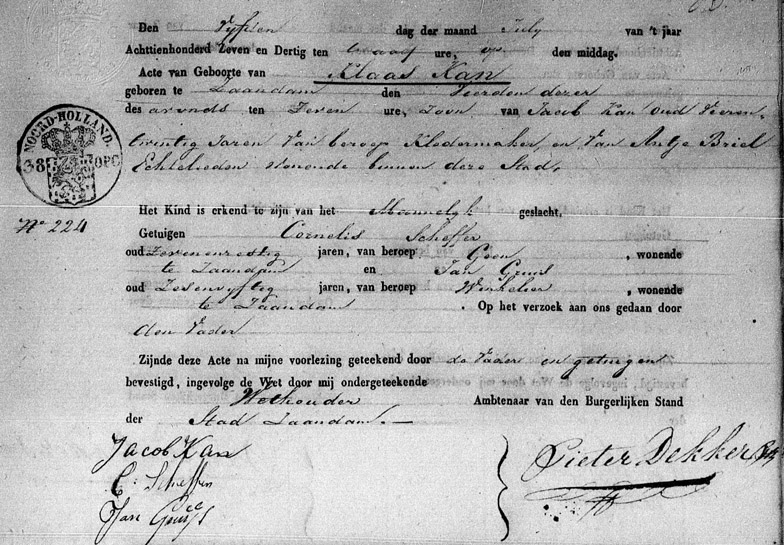 Den Vyfden dag der maand July van 't jaar
Achttienhonderd Zeven en Dertig ten twaalf ure, op den middag.
Acte van Geboorte van Klaas Kan
geboren te Zaandam den Vierden dezer
des avonds ten Zeven ure, Zoon van Jacob Kan Oud Vieren
twintig Jaren Van beroep Kledermaker, en Van Antje Briel
Echtelieden wonende binnen deze Stad,
NOORD-HOLLAND.
38 OPC
No 224
Het Kind is erkend te zijn van het Mannelyk geslacht,
Getuigen Cornelis Scheffer
oud Zevenenzestig jaren, van beroep Geen, wonende
te Zaandam en Jan Gruijs
oud Zesenvyftig jaren, van beroep Winkelier, wonende
te Zaandam. Op het verzoek aan ons gedaan door
den Vader
Zijnde deze Acte na mijne voorlezing geteekend door de Vader en getuigen
bevestigd, ingevolge de Wet door mij ondergeteekende
Wethouder Ambtenaar van den Burgerlijken Stand
der Stad Zaandam.
Jacob Kan
C. Scheffer
Jan Gruijs
Pieter Dekker